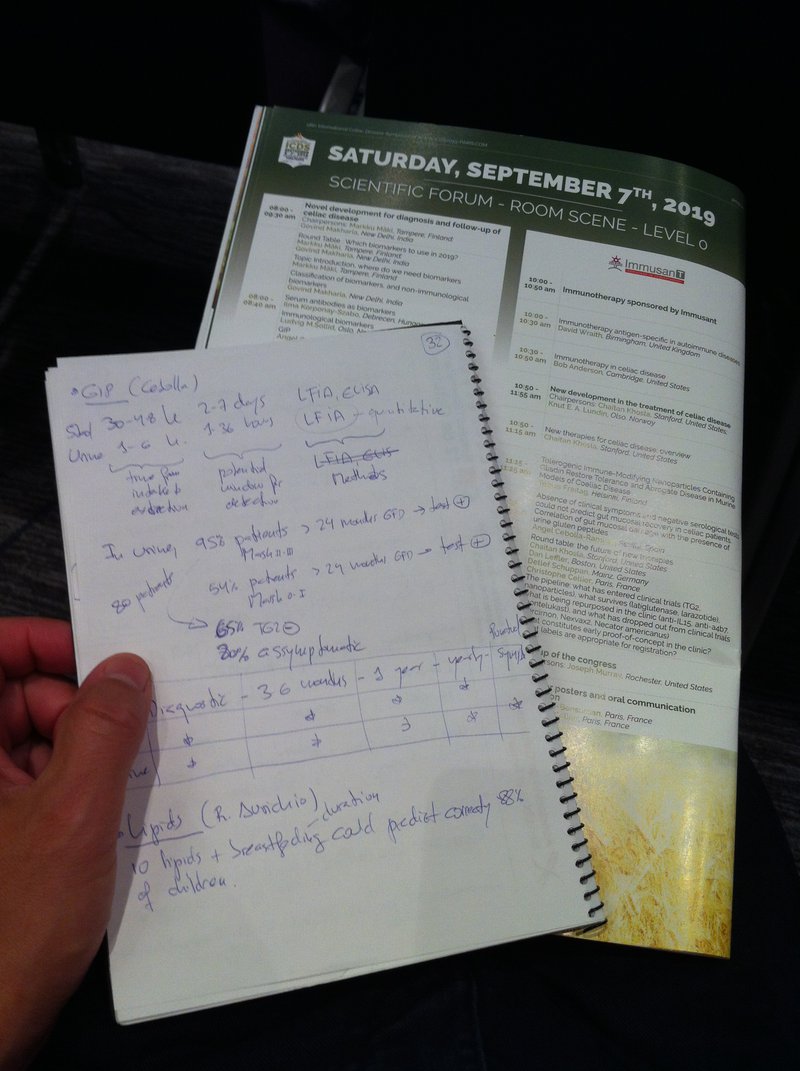 SATURDAY, SEPTEMBER 7TH, 2019
SCIENTIFIC FORUM - ROOM SCENE - LEVEL 0
ICDS
08:00 -
09:30 am
Novel development for diagnosis and follow-up of
celiac disease
Chairpersons: Markku Mäki, Tampere, Finland
Govind Makharia, New Delhi, India
Round Table : Which biomarkers to use in 2019?
Markku Mäki, Tampere, Finland
Govind Makharia, New Delhi, India
Topic Introduction, where do we need biomarkers
Markku Mäki, Tampere, Finland
Classification of biomarkers, and non-immunological
biomarkers
Govind Makharia, New Delhi, India
08:00 -
08:40 am
Serum antibodies as biomarkers
Ilma Korponay-Szabo, Debrecen,
Immunological biomarkers
Ludvig M.Sollid, Oslo,
GIP
ImmusanT
10:00 -
10:50 am
Immunotherapy sponsored by Immusant
10:00 -
10:30 am
Immunotherapy antigen-specific in autoimmune diseases
David Wraith, Birmingham, United Kingdom
10:30 -
10:50 am
Immunotherapy in celiac disease
Bob Anderson, Cambridge, United States
10:50 -
11:55 am
New development in the treatment of celiac disease
Chairpersons: Chaitan Khosla, Stanford, United States,
Knut E. A. Lundin, Olso, Norway
10:50 -
11:15 am
New therapies for celiac disease: overview
Chaitan Khosla, Stanford, United States
11:15 -
11:25 am
Tolerogenic Immune-Modifying Nanoparticles Containing
Gliadin Restore Tolerance and Abrogate Disease in Murine
Models of Coeliac Disease
Tobias Freitag, Helsinki, Finland
Absence of clinical symptoms and negative serological tests
could not predict gut mucosal recovery in celiac patients.
Correlation of gut mucosal damage with the presence of
urine gluten peptides
Round table: the future of new therapies
Chaitan Khosla, Stanford, United States
Dan Leffler, Boston, United States
Detlef Schuppan, Mainz, Germany
Christophe Cellier, Paris, France
The pipeline: what has entered clinical trials (TG2,
nanoparticles), what survives (latiglutenase, larazotide),
what is being repurposed in the clinic (anti-IL15, anti-a4b7,
and what has dropped out from clinical trials
Nexvax2, Necator americanus)
constitutes early proof-of-concept in the clinic?
labels are appropriate for registration?
up of the congress
Joseph Murray, Rochester, United States
posters and oral communication
Paris, France
Paris, France
32
GIP (Cebolla)
Stool 30-48 h 2-7 days LFIA, ELISA
Urine 1-6 h. 1-36 hours (LFIA - quantitative
time from potential LFIA, ELIS
intake to window for Methods
detection
In urine, 95% patients > 24 months GFD → test +
Marsh II-III
80 patients 54% patients > 24 months GFD → test +
Marsh 0-I
65% TG2 -
80% assymptomatic
Diagnostic - 3-6 months - 1 year - yearly
Lipids (R. Auricchio) duration
10 lipids + breastfeeding could predict correctly 88%
of children.